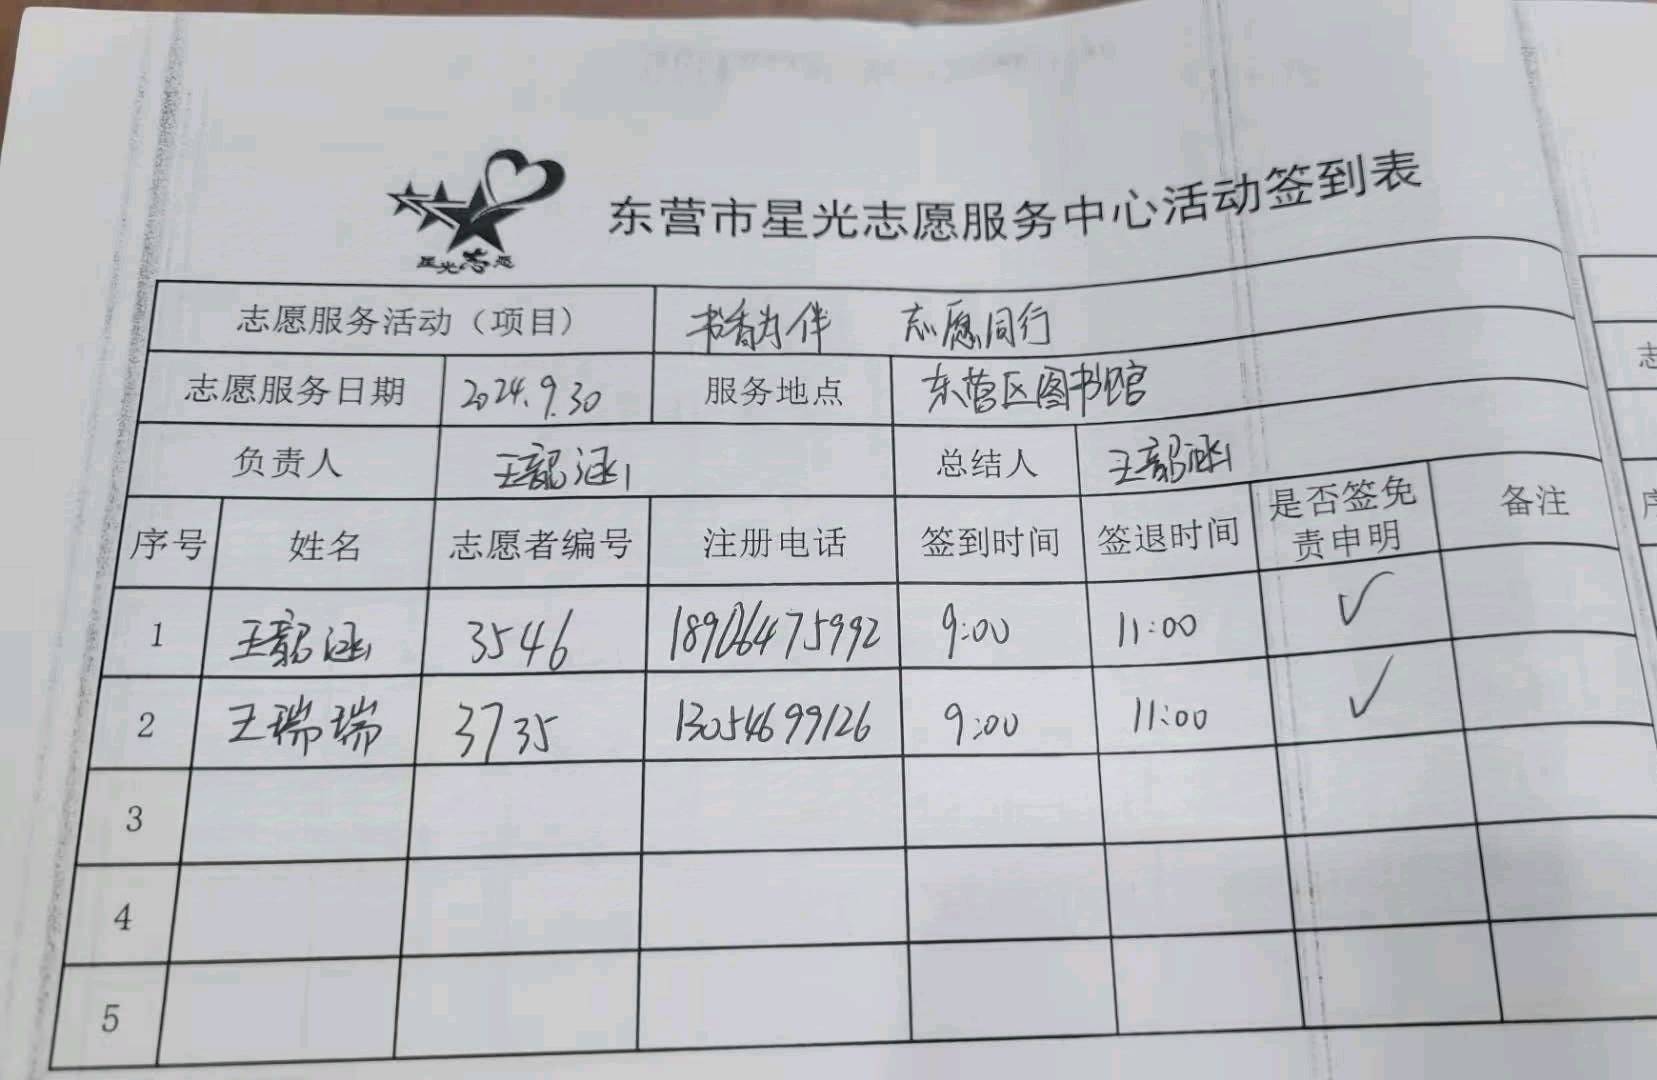 星光志愿
东营市星光志愿服务中心活动签到表
志愿服务活动（项目） 书香为伴 志愿同行
志愿服务日期 2024.9.30 服务地点 东营区图书馆
负责人 王韶涵 总结人 王韶涵
序号 姓名 志愿者编号 注册电话 签到时间 签退时间 是否签免责申明 备注
1 王韶涵 3546 18906475992 9:00 11:00 ✓
2 王瑞瑞 3735 13054699126 9:00 11:00 ✓
3
4
5
志
序